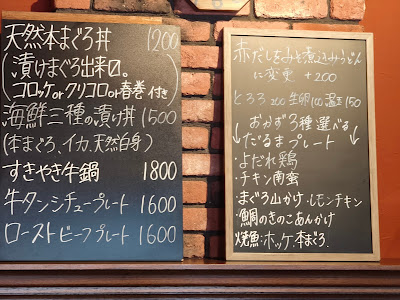 天然本まぐろ丼 1200
(漬けまぐろ出来〼。
コロッケorクリコロor春巻付き)
海鮮三種の漬け丼 1500
(本まぐろ、イカ、天然白身)
すきやき牛鍋 1800
牛タンシチュープレート 1600
ローストビーフプレート 1600
赤だしをみそ煮込みうどん
に変更 +200
とろろ200 生卵100 温玉150
おかず3種選べる
だるまプレート
・よだれ鶏
・チキン南蛮
・まぐろ山かけ・レモンチキン
・鯛のきのこあんかけ
・焼魚:ホッケ、本まぐろ